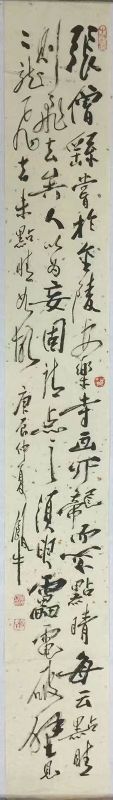 張僧繇嘗於金陵安樂寺畫龍而不點睛每云點睛
則飛去矣人以為妄固請点之須臾雷電破壁見
二龍飛去未點睛如故 庚辰仲夏